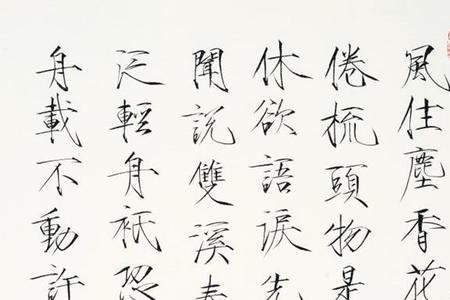 風住塵香花
倦梳頭物是
休欲語淚先
聞說雙溪春
泛輕舟衹恐
舟載不動許